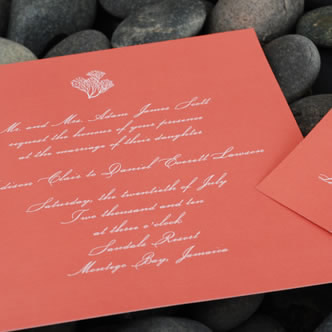 Mr. and Mrs. Adam James Scott
request the honour of your presence
at the marriage of their daughter
Clair to Daniel Everett Lawson
Saturday, the twentieth of July
Two thousand and ten
at three o'clock
Sandals Resort
Montego Bay, Jamaica